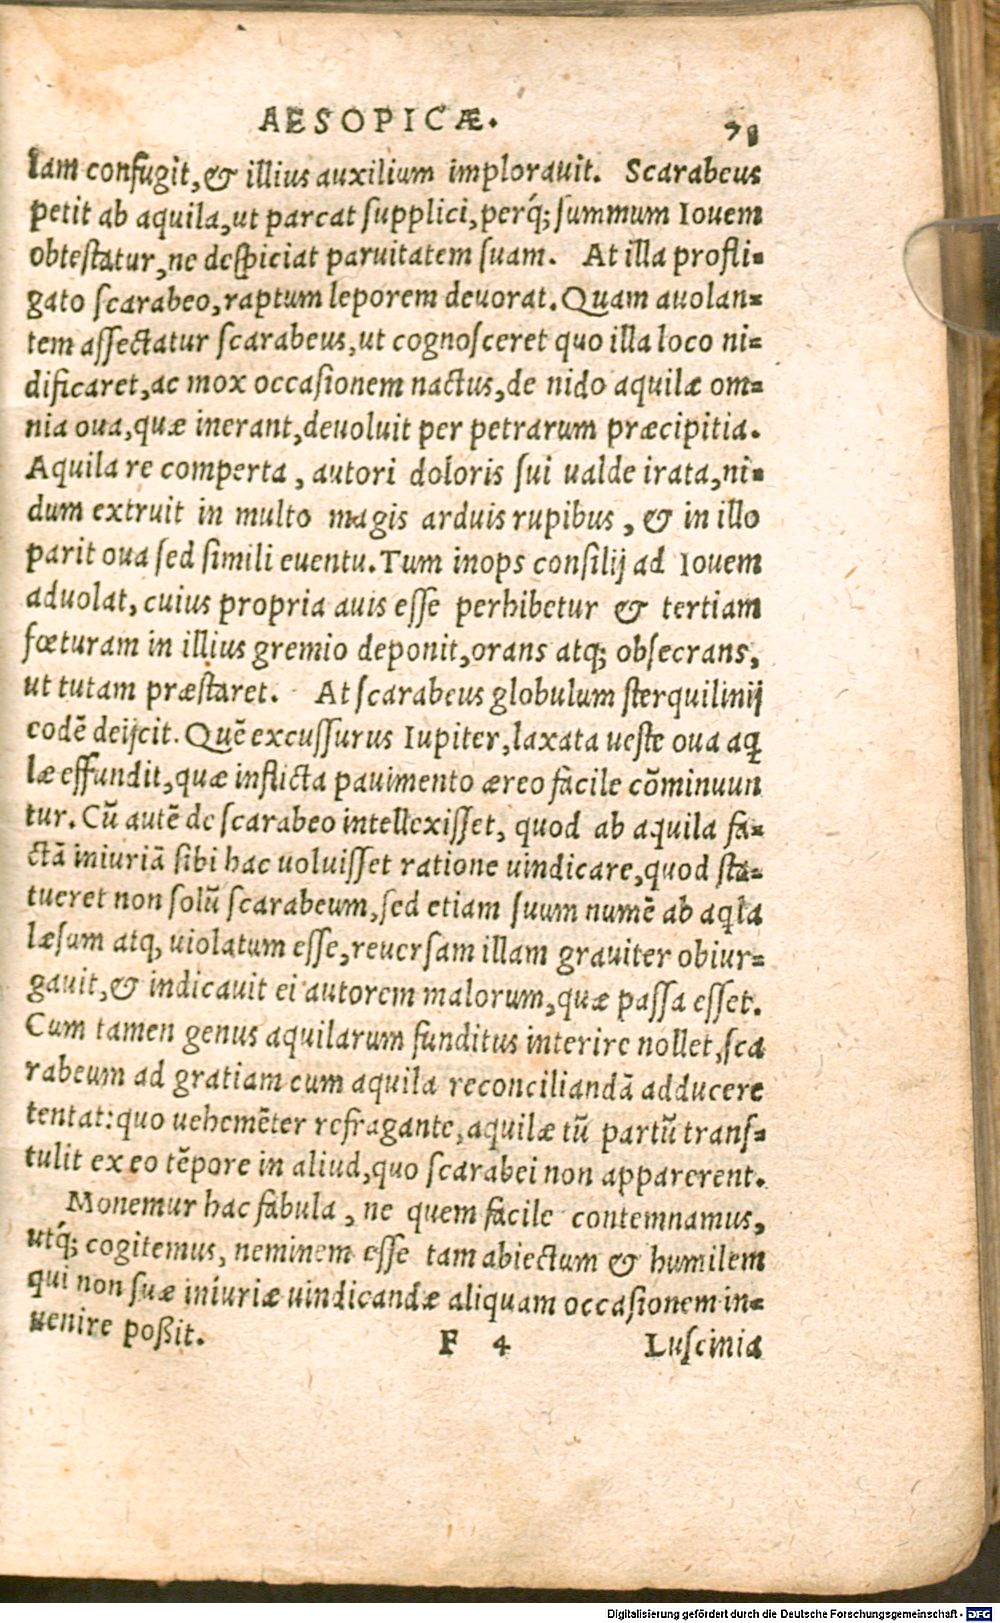 AESOPICÆ.
lam confugit, & illius auxilium implorauit. Scarabeus
petit ab aquila, ut parcat supplici, perq́; summum Iouem
obtestatur, ne despiciat paruitatem suam. At illa profli-
gato scarabeo, raptum leporem deuorat. Quam auolan-
tem assectatur scarabeus, ut cognosceret quo illa loco ni-
dificaret, ac mox occasionem nactus, de nido aquilæ om-
nia oua, quæ inerant, deuoluit per petrarum præcipitia.
Aquila re comperta, autori doloris sui ualde irata, ni-
dum extruit in multo magis arduis rupibus, & in illo
parit oua sed simili euentu. Tum inops consilij ad Iouem
aduolat, cuius propria auis esse perhibetur & tertiam
fœturam in illius gremio deponit, orans atq; obsecrans,
ut tutam præstaret. At scarabeus globulum sterquilinij
eodẽ deijcit. Quẽ excussurus Iupiter, laxata ueste oua aq̃
læ effundit, quæ inflicta pauimento æreo facile cõminuun
tur. Cũ autẽ de scarabeo intellexisset, quod ab aquila fa-
ctã iniuriã sibi hac uoluisset ratione uindicare, quod sta-
tueret non solũ scarabeum, sed etiam suum numẽ ab aq̃la
læsum atq, uiolatum esse, reuersam illam grauiter obiur-
gauit, & indicauit ei autorem malorum, quæ passa esset.
Cum tamen genus aquilarum funditus interire nollet, sca
rabeum ad gratiam cum aquila reconciliandã adducere
tentat: quo uehemẽter refragante, aquilæ tũ partũ trans-
tulit ex eo tẽpore in aliud, quo scarabei non apparerent.
Monemur hac fabula, ne quem facile contemnamus,
utq́; cogitemus, neminem esse tam abiectum & humilem
qui non suæ iniuriæ uindicandæ aliquam occasionem in-
uenire poßit.
F 4 Luscinia
Digitalisierung gefördert durch die Deutsche Forschungsgemeinschaft - DFG